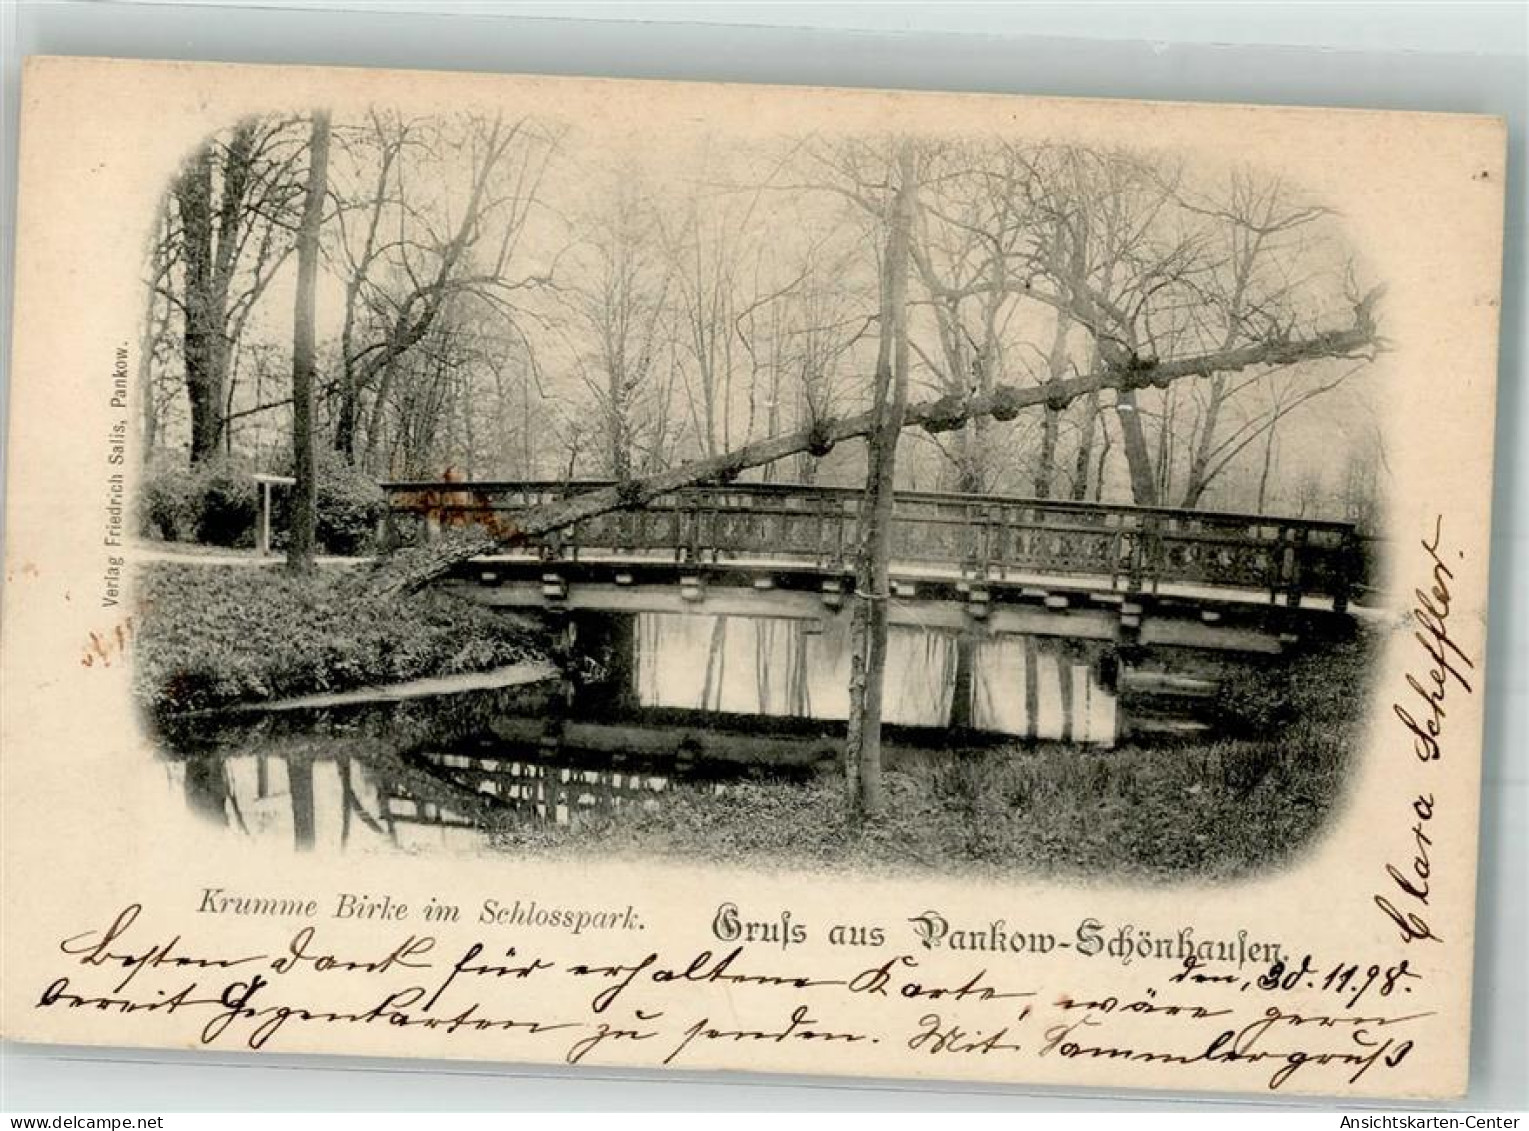 Verlag Friedrich Salis, Pankow.
Krumme Birke im Schlosspark.
Gruſs aus Pankow-Schönhauſen.
den, 30. 11. 98.
Besten Dank für erhaltene Karte, wäre gern
bereit Gegenkarten zu senden. Mit Sammlergruß
Clara Scheffler.
www.delcampe.net
Ansichtskarten-Center